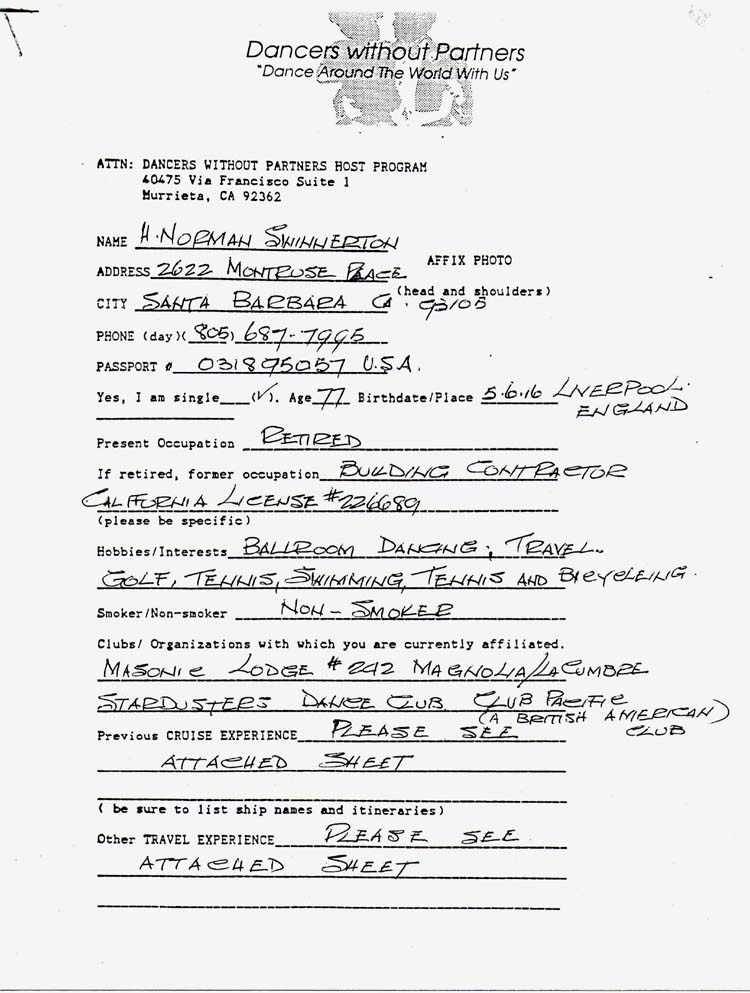 Dancers without Partners
"Dance Around The World With Us"
ATTN: DANCERS WITHOUT PARTNERS HOST PROGRAM
40475 Via Francisco Suite 1
Murrieta, CA 92362
NAME H. NORMAN SWINNERTON
AFFIX PHOTO
ADDRESS 2622 MONTROSE PLACE
(head and shoulders)
CITY SANTA BARBARA CA. 93105
PHONE (day)(805) 687-7995
PASSPORT # 031895057 U.S.A.
Yes, I am single (✓). Age 77 Birthdate/Place 5.6.16 LIVERPOOL.
ENGLAND
Present Occupation RETIRED
If retired, former occupation BUILDING CONTRACTOR
CALIFORNIA LICENSE #226689
(please be specific)
Hobbies/Interests BALLROOM DANCING; TRAVEL.
GOLF, TENNIS, SWIMMING, TENNIS AND BICYCLEING.
Smoker/Non-smoker NON-SMOKER
Clubs/ Organizations with which you are currently affiliated.
MASONIC LODGE #242 MAGNOLIA/LA CUMBRE
STARDUSTERS DANCE CLUB, CLUB PACIFIC
(A BRITISH AMERICAN)
CLUB
Previous CRUISE EXPERIENCE PLEASE SEE
ATTACHED SHEET
( be sure to list ship names and itineraries)
Other TRAVEL EXPERIENCE PLEASE SEE
ATTACHED SHEET